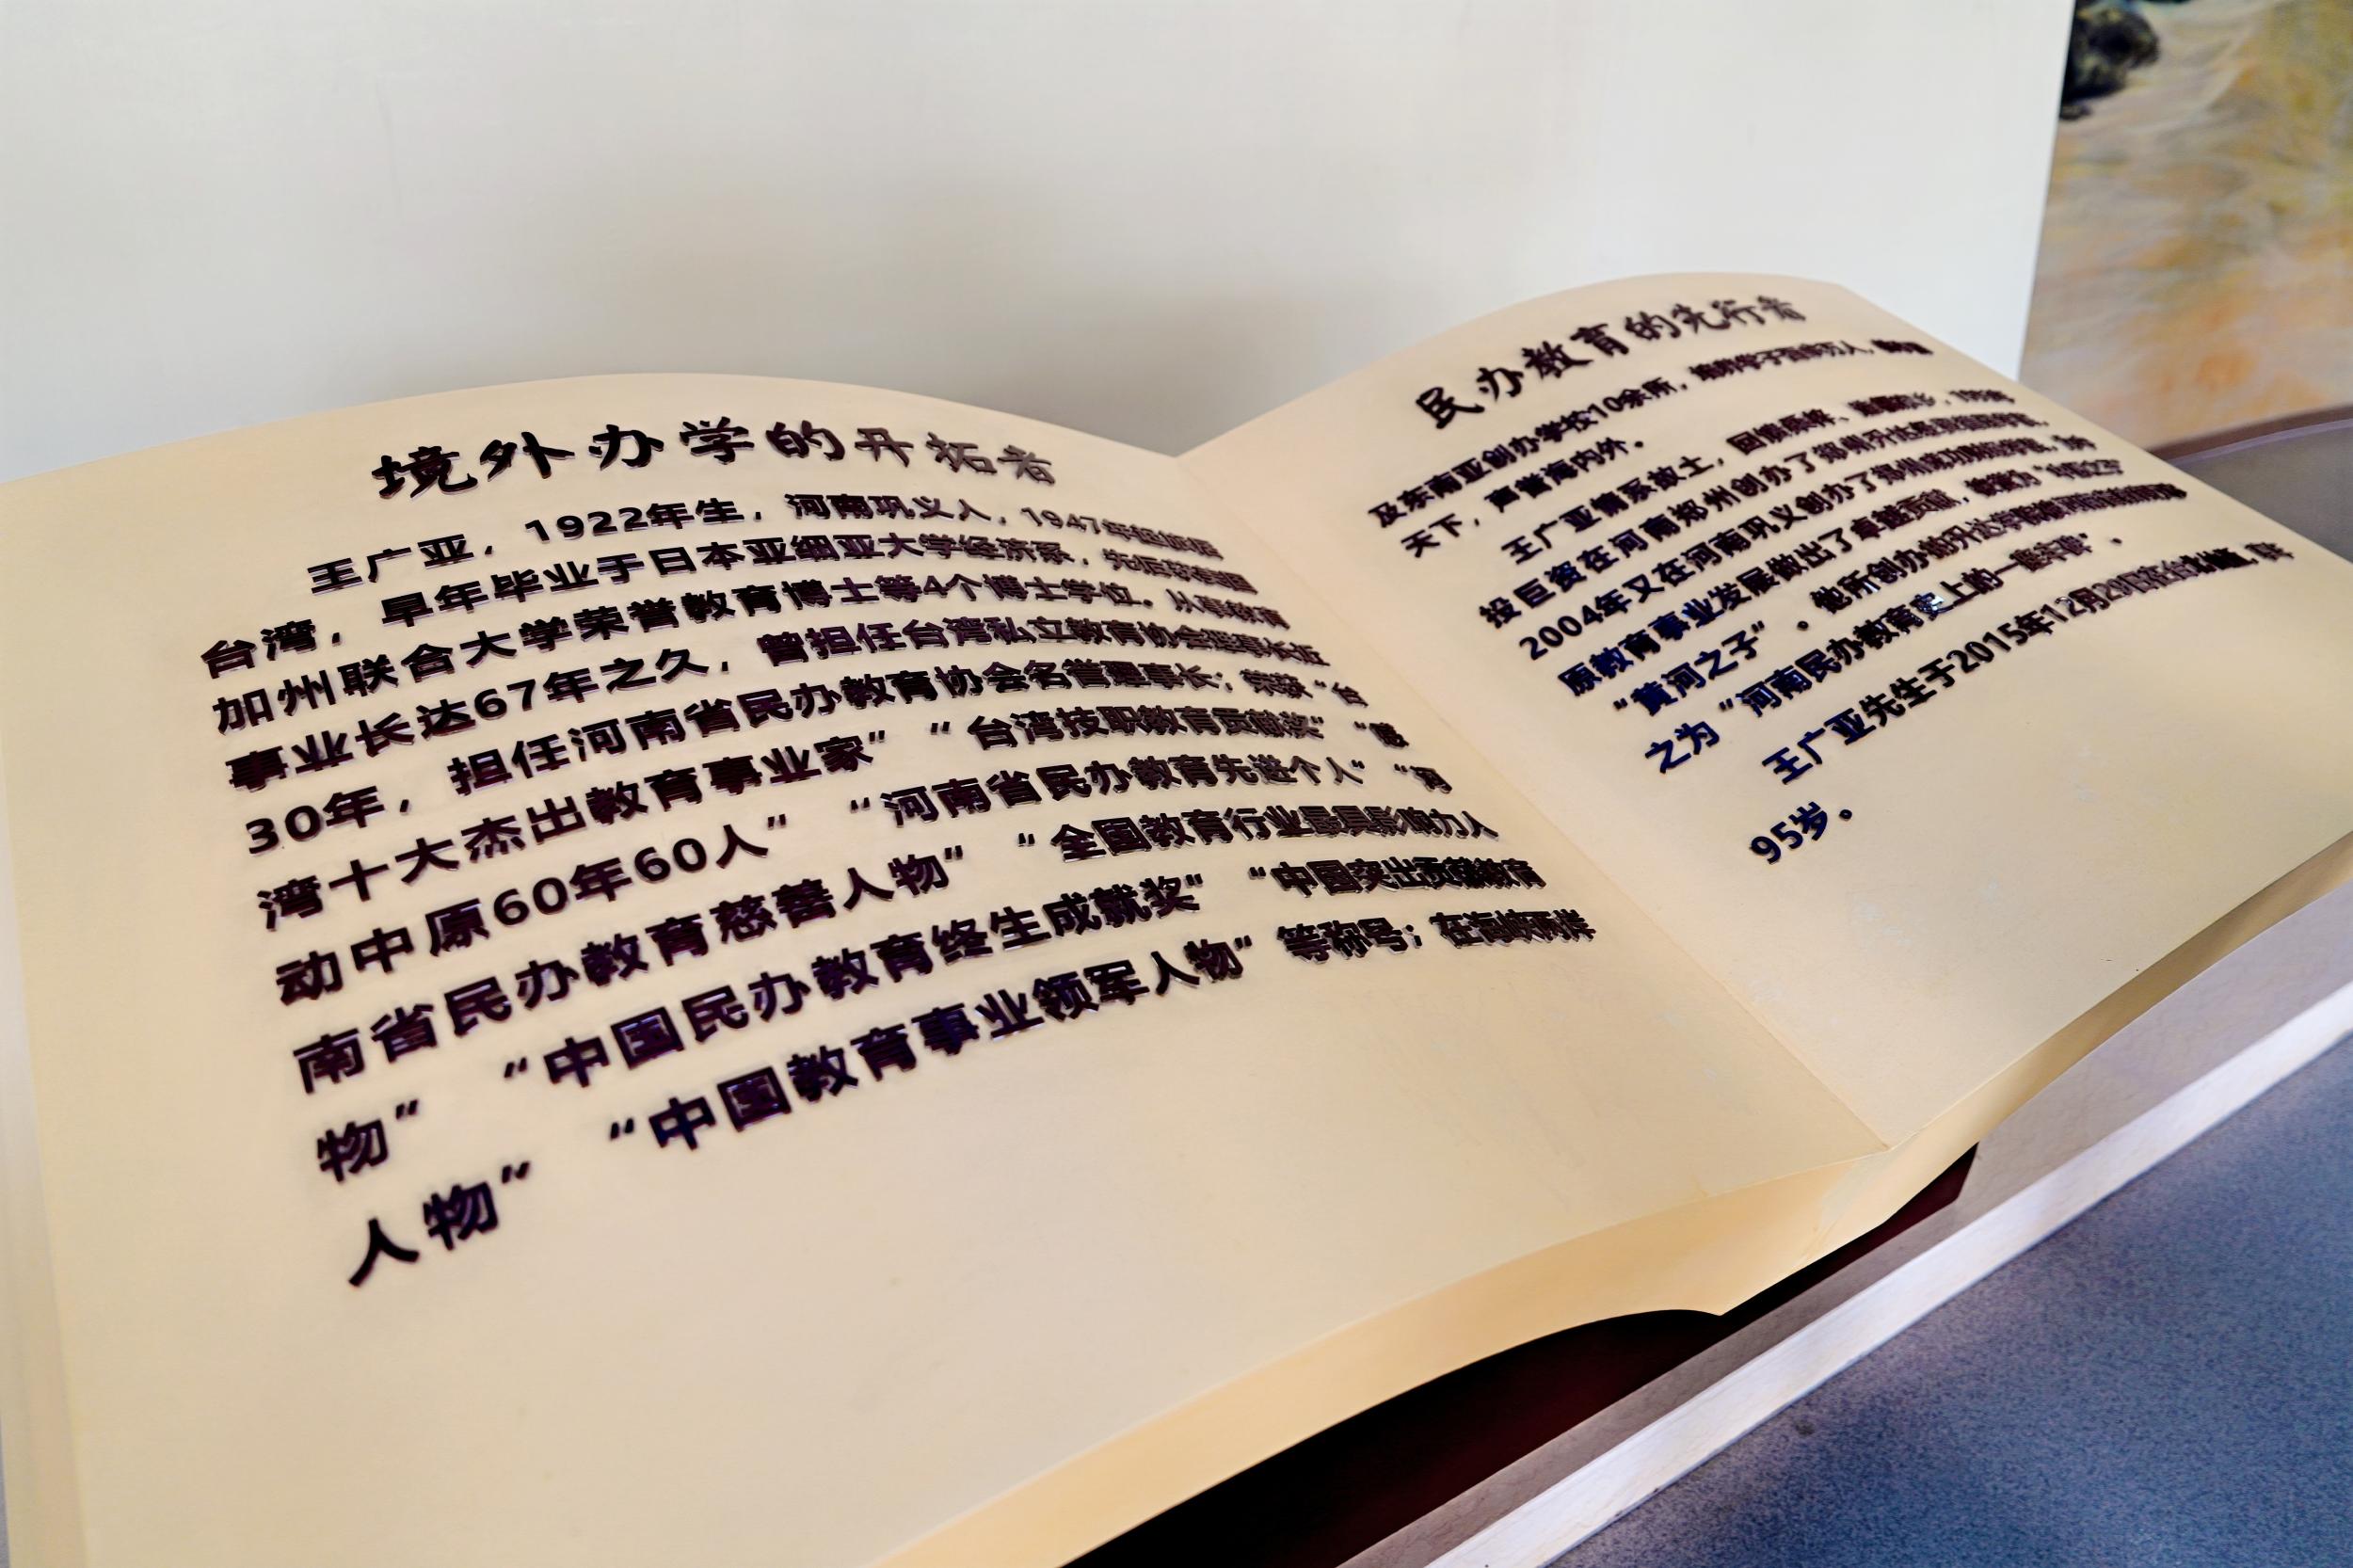 境外办学的开拓者
王广亚，1922年生，河南巩义人，1947年起旅居
台湾，早年毕业于日本亚细亚大学经济系，先后获美国
加州联合大学荣誉教育博士等4个博士学位。从事教育
事业长达67年之久，曾担任台湾私立教育协会理事长近
30年，担任河南省民办教育协会名誉理事长；荣获“台
湾十大杰出教育事业家”“台湾技职教育贡献奖”“感
动中原60年60人”“河南省民办教育先进个人”“河
南省民办教育慈善人物”“全国教育行业最具影响力人
物”“中国民办教育终生成就奖”“中国突出贡献教育
人物”“中国教育事业领军人物”等称号；在海峡两岸
民办教育的先行者
及东南亚创办学校10余所，培养学子百余万人，
天下，声誉海内外。
王广亚情系故土，回馈桑梓、造福家乡，
投巨资在河南郑州创办了郑州升达经贸管理学院，
2004年又在河南巩义创办了郑州成功财经学院，为中
原教育事业发展做出了卓越贡献，被誉为“中原之子”
“黄河之子”。他所创办的升达学院被
之为“河南民办教育史上的一座丰碑”。
王广亚先生于2015年12月29日在台北
95岁。